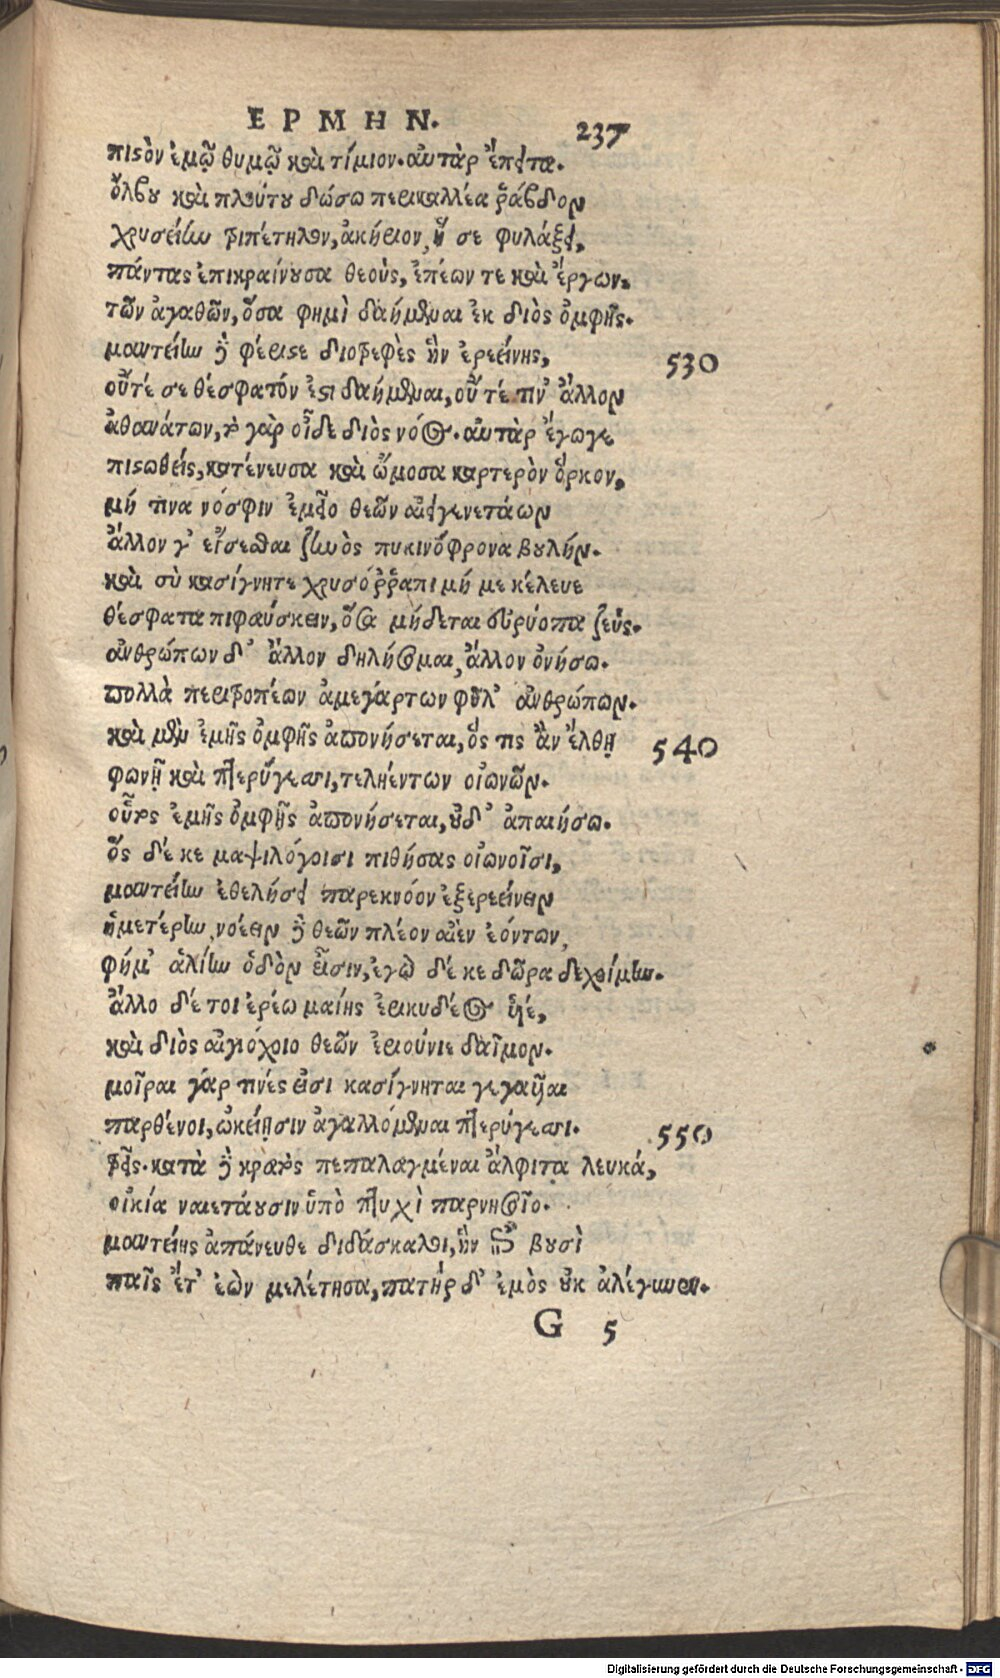 ΕΡΜΗΝ.
237
πιστὸν ἐμῷ θυμῷ καὶ τίμιον. αὐτὰρ ἔπειτα.
ὄλβου καὶ πλούτου δώσω περικαλλέα ῥάβδον
χρυσείην τριπέτηλον, ἀκήριον, ἥ σε φυλάξει,
πάντας ἐπικραίνουσα θεοὺς, ἐπέων τε καὶ ἔργων.
τῶν ἀγαθῶν, ὅσα φημὶ δαήμεναι ἐκ διὸς ὀμφῆς.
μαντείην δὲ φέριστε διοτρεφὲς ἣν ἐρεείνης,
530
οὔτέ σε θέσφατόν ἐστι δαήμεναι, οὔτέ τιν' ἄλλον
ἀθανάτων, τὸ γὰρ οἶδε διὸς νόος. αὐτὰρ ἔγωγε
πιστωθεὶς, κατένευσα καὶ ὤμοσα καρτερὸν ὅρκον,
μή τινα νόσφιν ἐμεῖο θεῶν αἰειγενετάων
ἄλλον γ' εἴσεσθαι ζηνὸς πυκινόφρονα βουλήν.
καὶ σὺ κασίγνητε χρυσόῤῥαπι μή με κέλευε
θέσφατα πιφαύσκειν, ὅσα μήδεται εὐρύοπα ζεύς.
ἀνθρώπων δ' ἄλλον δηλήσομαι, ἄλλον ὀνήσω.
πολλὰ περιτροπέων ἀμεγάρτων φῦλ' ἀνθρώπων.
καὶ μὲν ἐμῆς ὀμφῆς ἀπονήσεται, ὅς τις ἂν ἔλθῃ
540
φωνῇ καὶ πτερύγεσσι, τελήεντων οἰωνῶν.
οὗτος ἐμῆς ὀμφῆς ἀπονήσεται, οὐδ' ἀπατήσω.
ὃς δέ κε μαψιλόγοισι πιθήσας οἰωνοῖσι,
μαντείην ἐθελήσει παρεκνόον ἐξερεείνειν
ἡμετέρην, νοέειν δὲ θεῶν πλέον αἰὲν ἐόντων,
φήμ' ἁλίην ὁδὸν εἶσιν, ἐγὼ δέ κε δῶρα δεχοίμην.
ἄλλο δέ τοι ἐρέω μαίης ἐρικυδέος υἱέ,
καὶ διὸς αἰγιόχοιο θεῶν ἐριούνιε δαῖμον.
μοῖραι γάρ τινές εἰσι κασίγνηται γεγαυῖαι
παρθένοι, ὠκείῃσιν ἀγαλλόμεναι πτερύγεσσι.
550
τρεῖς. κατὰ δὲ κρατὸς πεπαλαγμέναι ἄλφιτα λευκά,
οἰκία ναιετάουσιν ὑπὸ πτυχὶ παρνησοῖο.
μαντείης ἀπάνευθε διδάσκαλοι, ἣν ἐπὶ βουσὶ
παῖς ἔτ' ἐὼν μελέτησα, πατὴρ δ' ἐμὸς οὐκ ἀλέγυνεν.
G 5
Digitalisierung gefördert durch die Deutsche Forschungsgemeinschaft - DFG